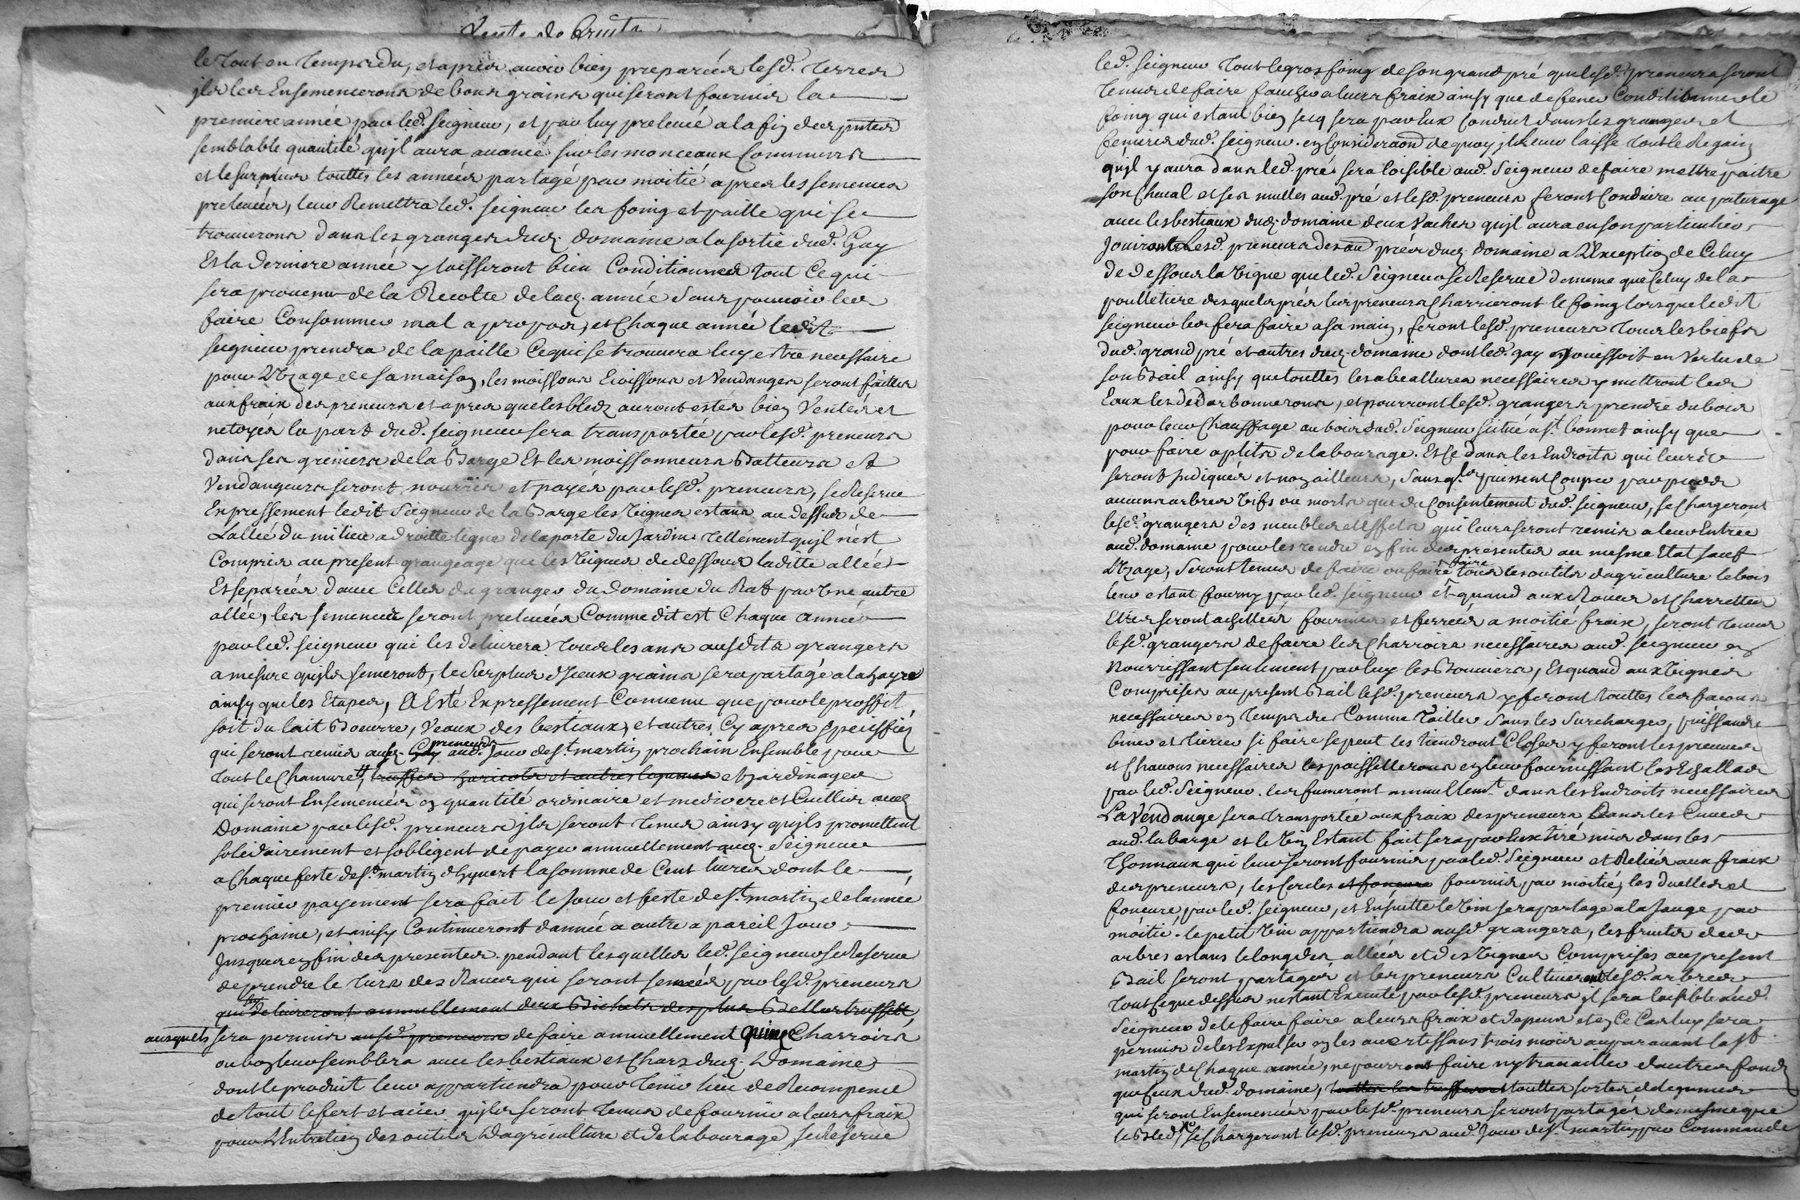 Vente de fruits
le tout en temps du, et apres avoir bien preparées lesd. terres
ils les Ensemenceront de bons grains qui seront fournis la
premiere année par led. seigneur, et par luy prelevé a la fin des putes
semblable quantité qu'jl aura avancé sur les monceaux Communs
et le surplus touttes les années partagé par moitié apres les semences
prelevées, leur Remettra led. seigneur les foing et paille qui se
trouverons dans les granges dud. domaine a la sortie dud. Gay
Et la derniere année y laisseront bien Conditionnes tout ce qui
sera provenu de la Recolte de lad. année sans pouvoir les
faire Consommer mal a propos, et Chaque année ledit
seigneur prendra de la paille Ce qui se trouvera luy estre necessaire
pour Usage de sa maison, les moissons Moissons et Vendanges seront faittes
aux fraix des preneurs et apres que les bleds auront estés bien Ventés et
netoyés la part dud. seigneur sera transportée par lesd. preneurs
dans ses greniers de la Barge Et les moissonneurs Batteurs et
Vendangeurs seront nourris et payés par lesd. preneurs, se Reserve
Expressement ledit Seigneur de la Barge les Vignes estans au dessus de
L'allée du milieu a droitte ligne de la porte du Jardin tellement qu'jl n'est
Compris au present grangeage que les Vignes de dessous laditte allée
Et separées d'avec Celles du granger du Domaine du Rat par Une autre
allée, les semences seront prelevées Comme dit est Chaque année
par led. seigneur qui les delivrera tous les ans ausdits grangers
a mesure qu'ils semeront, le surplus d'Iceux grains sera partagé a la
ainsy que les Etapes, A Esté Expressement Convenu que pour le proffit,
soit du lait Beurre, Veaux des bestiaux, et autres Cy apres speciffiés
qui seront remis aud. preneurs aud. Jour de St martin prochain Ensemble pour
tout le Chanvre, truffes haricots et autres legumes et Jardinages
qui seront Ensemencés en quantité ordinaire et mediocre et Cuillis aud.
Domaine par lesd. preneurs jls seront tenus ainsy qu'ils promettent
solidairement et s'obligent de payer annuellement aud. Seigneur
a Chaque feste de St martin d'hyvert la somme de Cent livres dont le
premier payement sera fait le Jour et feste de St. martin de l'année
prochaine, et ainsy Continueront d'année a autre a pareil Jour
Jusques en fin des presentes pendant lesquelles led. seigneur se Reserve
de prendre le tiers des Raves qui seront semées par lesd. preneurs
qui delivreront annuellement deux Bichets des plus Belles truffes
ausquels sera permis ausd. preneurs de faire annuellement quinze Charrois
ou bon leur semblera avec les bestiaux et Chars dud. Domaine
dont le produit leur appartiendra pour tenir lieu de Recompence
de tout le fert et acier qu'jls seront tenus de fournir a leurs fraix
pour L'Entretien des outils d'agriculture et de labourage se Reserve
led. seigneur tout le gros foing de son grand pré que lesd. preneurs seront
tenus de faire faucher a leurs fraix ainsy que de fener Conditionner le
foing qui estant bien secq sera par eux Conduit dans les granges et
fenieres dud. seigneur en Consideraon de quoy jl leur laisse tout le Regain
qu'jl y aura dans led. pré sera loisible aud. Seigneur de faire mettre paitre
son Cheval et ses mulles aud. pré et lesd. preneurs feront Conduire au paturage
avec les bestiaux dud. domaine deux Vaches qu'jl aura en son particulier
Jouiront lesd. preneurs des prés dud. domaine a L'Exception de Celuy
de dessous la Vigne que led. Seigneur se Reserve de meme que Celuy de la
poulletiere desquels prés les preneurs Charrieront le foing lorsque ledit
seigneur les fera faire a sa main, feront lesd. preneurs tous les biefs
dud. grand pré et autres dud. domaine dont led. gay Jouissoit en Vertu de
son Bail ainsy que touttes les abeallures necessaires y mettront les
Eaux les desarbonnerons, et pourront lesd. grangers prendre du bois
pour leur Chauffage au bois dud. Seigneur situé a St. bonnet ainsy que
pour faire aplits de labourage. Et ce dans les Endroits qui leur
seront Indiqués et non ailleurs, sans qls puissent Couper par pieds
aucuns arbres Vifs ou morts que du Consentement dud. seigneur, se Chargeront
lesd. grangers des meubles et Effets qui leurs seront remis a leur Entrée
aud. domaine pour les rendre en fin des presentes au mesme Etat sauf
L'Usage, seront tenus de faire ou faire faire tous les outils d'agriculture le bois
leur estant fourny par led. seigneur et quand aux Roues et Charrettes
Elles seront achettées fournies et ferrées a moitié fraix, seront tenus
lesd. grangers de faire les Charrois necessaires aud. Seigneur en
Nourrissant seulement par luy les Bouviers, Et quand aux Vignes
Comprises au present Bail lesd. preneurs y feront touttes les façons
necessaires en temps du Comme tailler sans les Surcharger, puissamer
biner et tiercer si faire se peut les tiendront Closes y feront les preneurs
et Chavons necessaires les paisselleront en leur fournissant les Echallas
par led. Seigneur. les fumeront annuellemt. dans les Endroits necessaires
La Vendange sera transportée aux fraix des preneurs dans les Cuves
aud. la barge et le Vin Estant fait sera par Eux tiré mis dans les
thonneaux qui leur seront fournis par led. Seigneur et Reliés aux fraix
des preneurs, les Cercles et fonsures fournis par moitié les duelles et
fonsure par led. seigneur, et Ensuitte le Vin sera partagé a la Jauge par
moitié. le petit Vin appartiendra ausd. grangers, les fruits des
arbres estans le long des allées et des Vignes Comprises au present
Bail seront partagés et les preneurs Cultiveront lesd. arbres
tout ce que dessus n'estant Executé par lesd. preneurs jl sera loisible aud.
Seigneur de le faire faire a leurs fraix et depens et en Ce Cas luy sera
permis de les Expulser en les avertissans trois mois auparavant la St.
martin de Chaque année, ne pourront faire ny travailler d'autres fonds
que Ceux dud. domaine, touttes les truffes et touttes sortes de legumes
qui seront Ensemencés par lesd. preneurs seront partagés de mesme que
le Bled, se Chargeront lesd. preneurs aud. Jour de St. martin par Commande